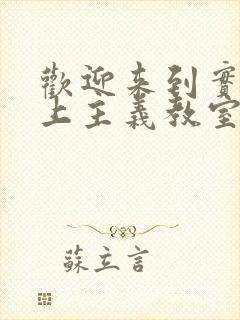 歡迎來到實
上主義教室
蘇立言